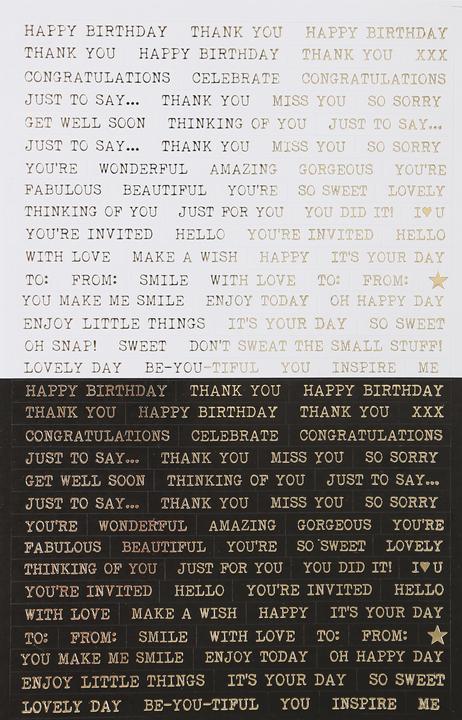 HAPPY BIRTHDAY THANK YOU HAPPY BIRTHDAY
THANK YOU HAPPY BIRTHDAY THANK YOU XXX
CONGRATULATIONS CELEBRATE CONGRATULATIONS
JUST TO SAY... THANK YOU MISS YOU SO SORRY
GET WELL SOON THINKING OF YOU JUST TO SAY...
JUST TO SAY... THANK YOU MISS YOU SO SORRY
YOU'RE WONDERFUL AMAZING GORGEOUS YOU'RE
FABULOUS BEAUTIFUL YOU'RE SO SWEET LOVELY
THINKING OF YOU JUST FOR YOU YOU DID IT! I♥U
YOU'RE INVITED HELLO YOU'RE INVITED HELLO
WITH LOVE MAKE A WISH HAPPY IT'S YOUR DAY
TO: FROM: SMILE WITH LOVE TO: FROM: ★
YOU MAKE ME SMILE ENJOY TODAY OH HAPPY DAY
ENJOY LITTLE THINGS IT'S YOUR DAY SO SWEET
OH SNAP! SWEET DON'T SWEAT THE SMALL STUFF!
LOVELY DAY BE-YOU-TIFUL YOU INSPIRE ME
HAPPY BIRTHDAY THANK YOU HAPPY BIRTHDAY
THANK YOU HAPPY BIRTHDAY THANK YOU XXX
CONGRATULATIONS CELEBRATE CONGRATULATIONS
JUST TO SAY... THANK YOU MISS YOU SO SORRY
GET WELL SOON THINKING OF YOU JUST TO SAY...
JUST TO SAY... THANK YOU MISS YOU SO SORRY
YOU'RE WONDERFUL AMAZING GORGEOUS YOU'RE
FABULOUS BEAUTIFUL YOU'RE SO SWEET LOVELY
THINKING OF YOU JUST FOR YOU YOU DID IT! I♥U
YOU'RE INVITED HELLO YOU'RE INVITED HELLO
WITH LOVE MAKE A WISH HAPPY IT'S YOUR DAY
TO: FROM: SMILE WITH LOVE TO: FROM: ★
YOU MAKE ME SMILE ENJOY TODAY OH HAPPY DAY
ENJOY LITTLE THINGS IT'S YOUR DAY SO SWEET
LOVELY DAY BE-YOU-TIFUL YOU INSPIRE ME